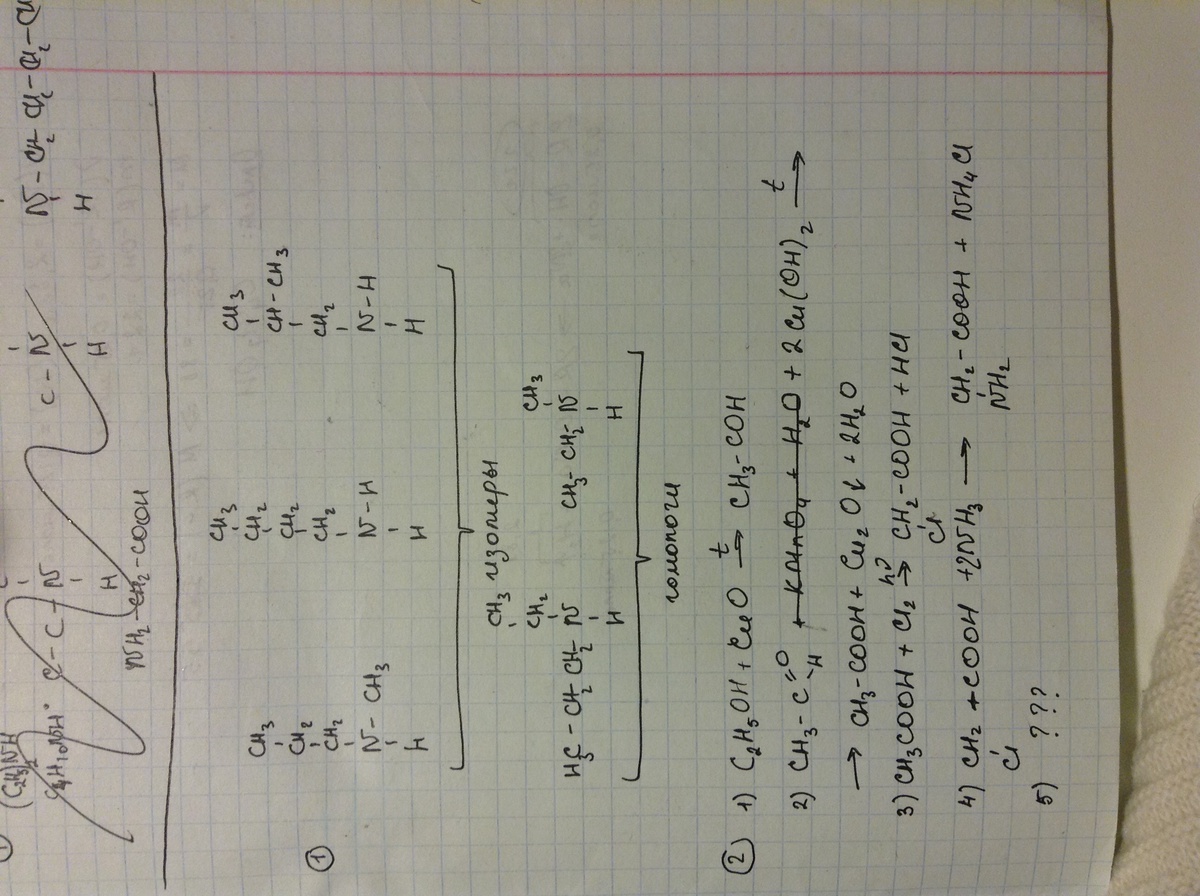 (C₂H₅)₂NH
C – C – N
H
C – N
H
N – CH₂ – CH₂ – CH₂ –
H
NH₂ – CH₂ – COOH
①
CH₃
CH₂
CH₂
N – CH₃
H
CH₃
CH₂
CH₂
CH₂
N – H
H
CH₃
CH – CH₃
CH₂
N – H
H
изомеры
CH₃
CH₂
H₃C – CH₂ – CH₂ – N
H
CH₃
CH₃ – CH₂ – N
H
гомологи
② 1) C₂H₅OH + CuO →t CH₃ – COH
2) CH₃ – C =O –H + KMnO₄ + H₂O + 2Cu(OH)₂ →t
→ CH₃ – COOH + Cu₂O↓ + 2H₂O
3) CH₃COOH + Cl₂ →hν CH₂ – COOH + HCl
Cl
4) CH₂ + COOH + 2NH₃ → CH₂ – COOH + NH₄Cl
Cl NH₂
5) ???